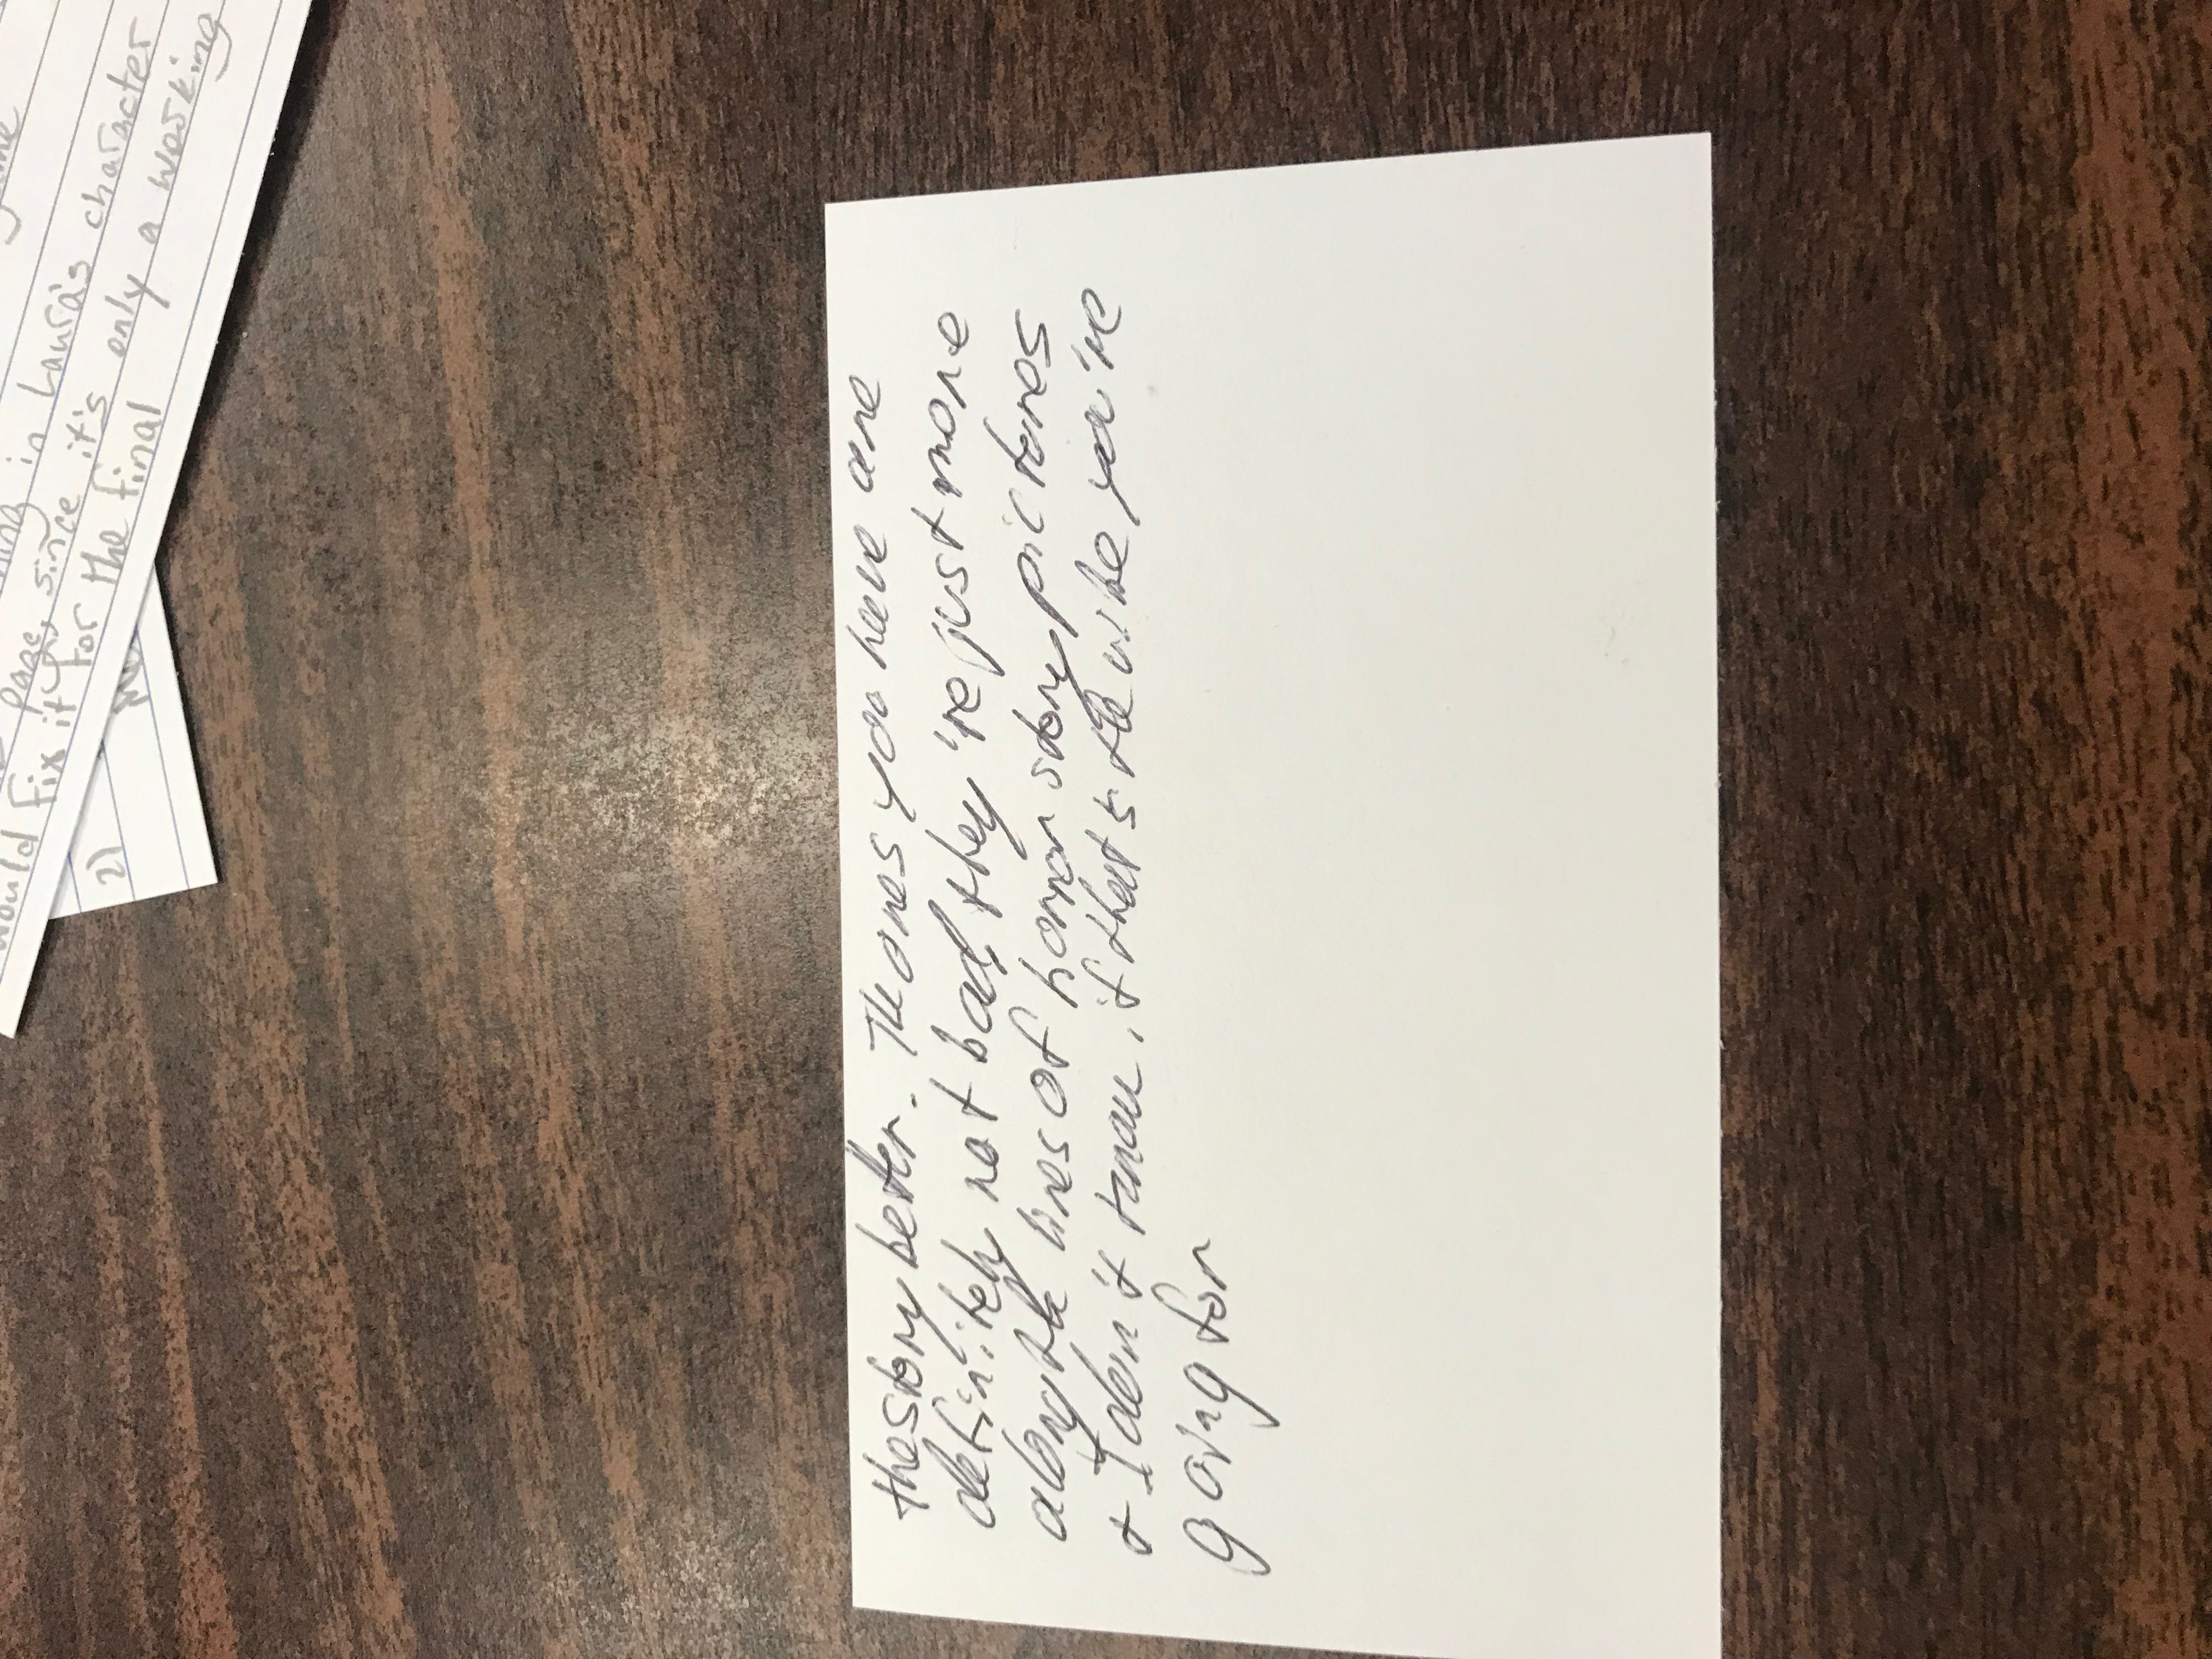 page, since it's only a working
would fix it for the final
in Laura's character
2)
the story better. The ones you have are
definitely not bad, they're just more
along the lines of horror story pictures
+ I don't know if that's the vibe you're
going for